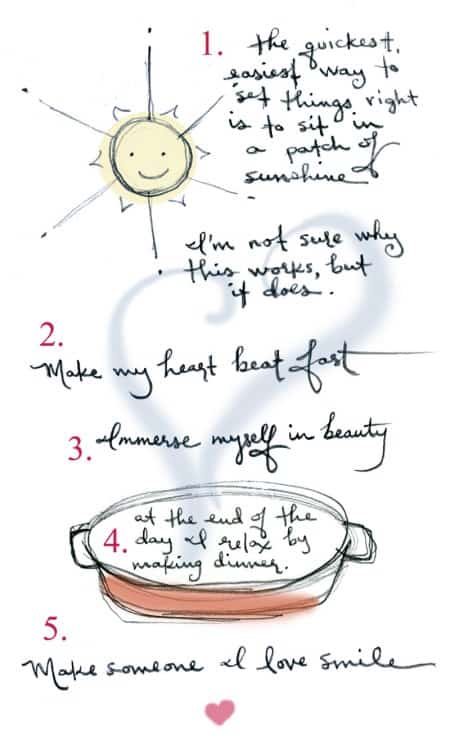 1. the quickest,
easiest way to
set things right
is to sit in
a patch of
sunshine
I'm not sure why
this works, but
it does.
2.
Make my heart beat fast
3. Immerse myself in beauty
at the end of the
4. day I relax by
making dinner.
5.
Make someone I love smile